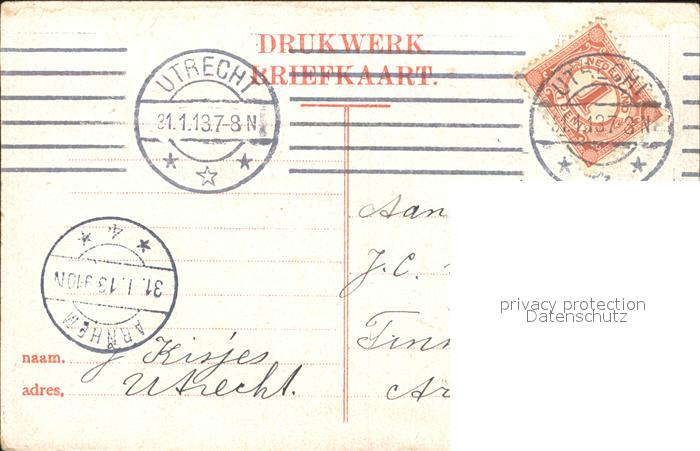 DRUKWERK.
BRIEFKAART.
UTRECHT
31.1.13.7-8N
UTRECHT
31.1.13.7-8N
NEDERL
1
Aan
J.C.
31.1.13.910N
ARNHEM
4
privacy protection
Datenschutz
naam. J Kisjes
adres, Utrecht.